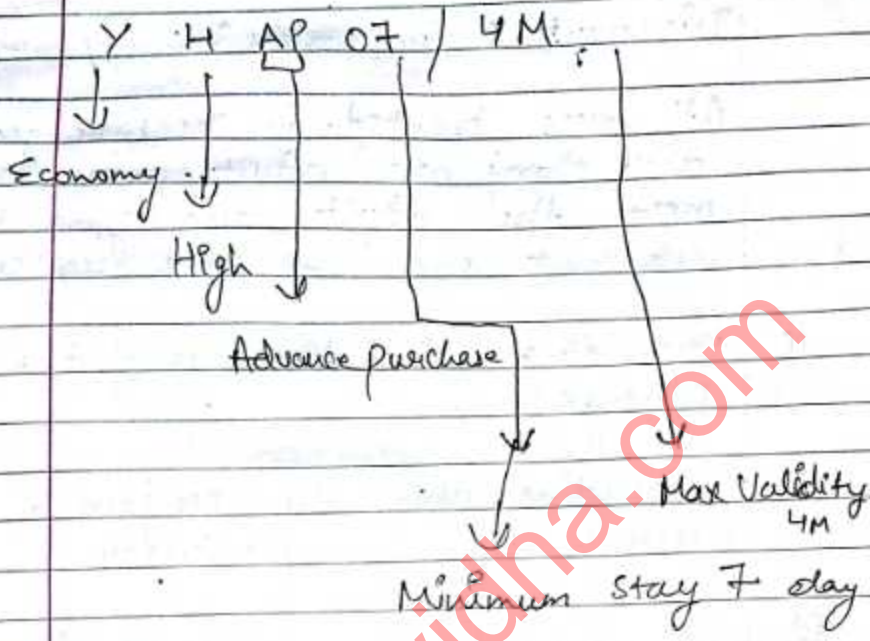 Y H AP 07 / 4M
Economy
High
Advance purchase
Max Validity
4M
Minimum stay 7 day
vidha.com